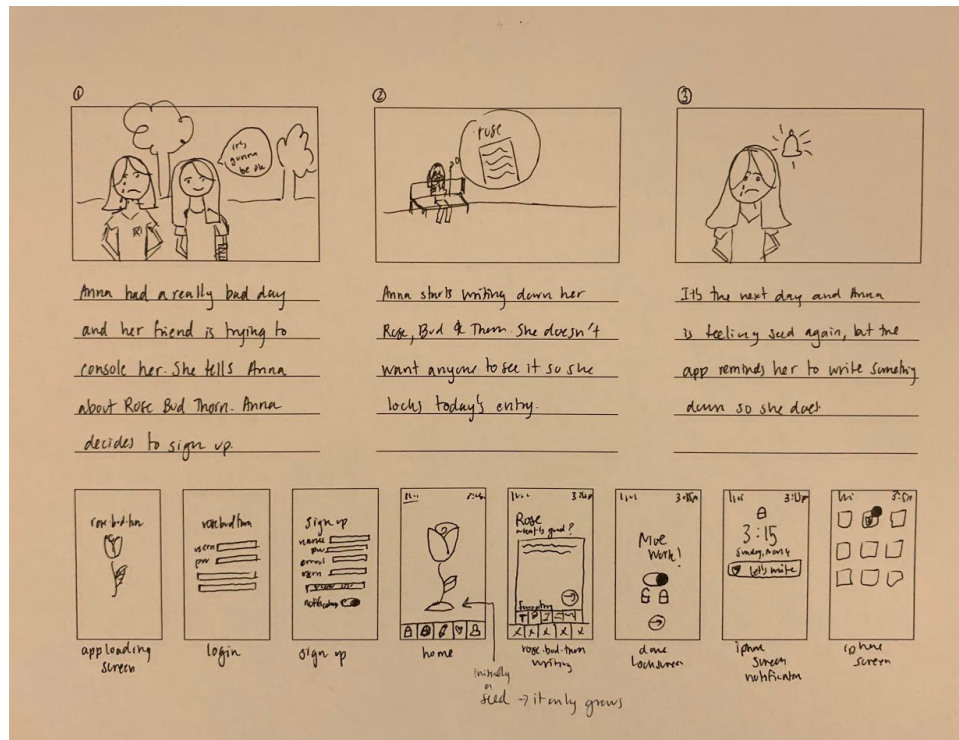 ①
②
③
it's
gunna
be ok
rose
Anna had a really bad day
and her friend is trying to
console her. She tells Anna
about Rose Bud Thorn. Anna
decides to sign up.
Anna starts writing down her
Rose, Bud & Thorn. She doesn't
want anyone to see it so she
locks today's entry.
It's the next day and Anna
is feeling sad again, but the
app reminds her to write something
down so she does
rose·bud·thorn
app loading
screen
rose bud thorn
usern
pw
login
sign up
name
pw
email
usern
notifications
sign up
home
initially
a
seed → it only grows
Rose
what is good?
rose·bud·thorn
writing
Nice
work!
done
lockscreen
3:15
Sunday,
let's write
iphone
screen
notification
iphone
screen